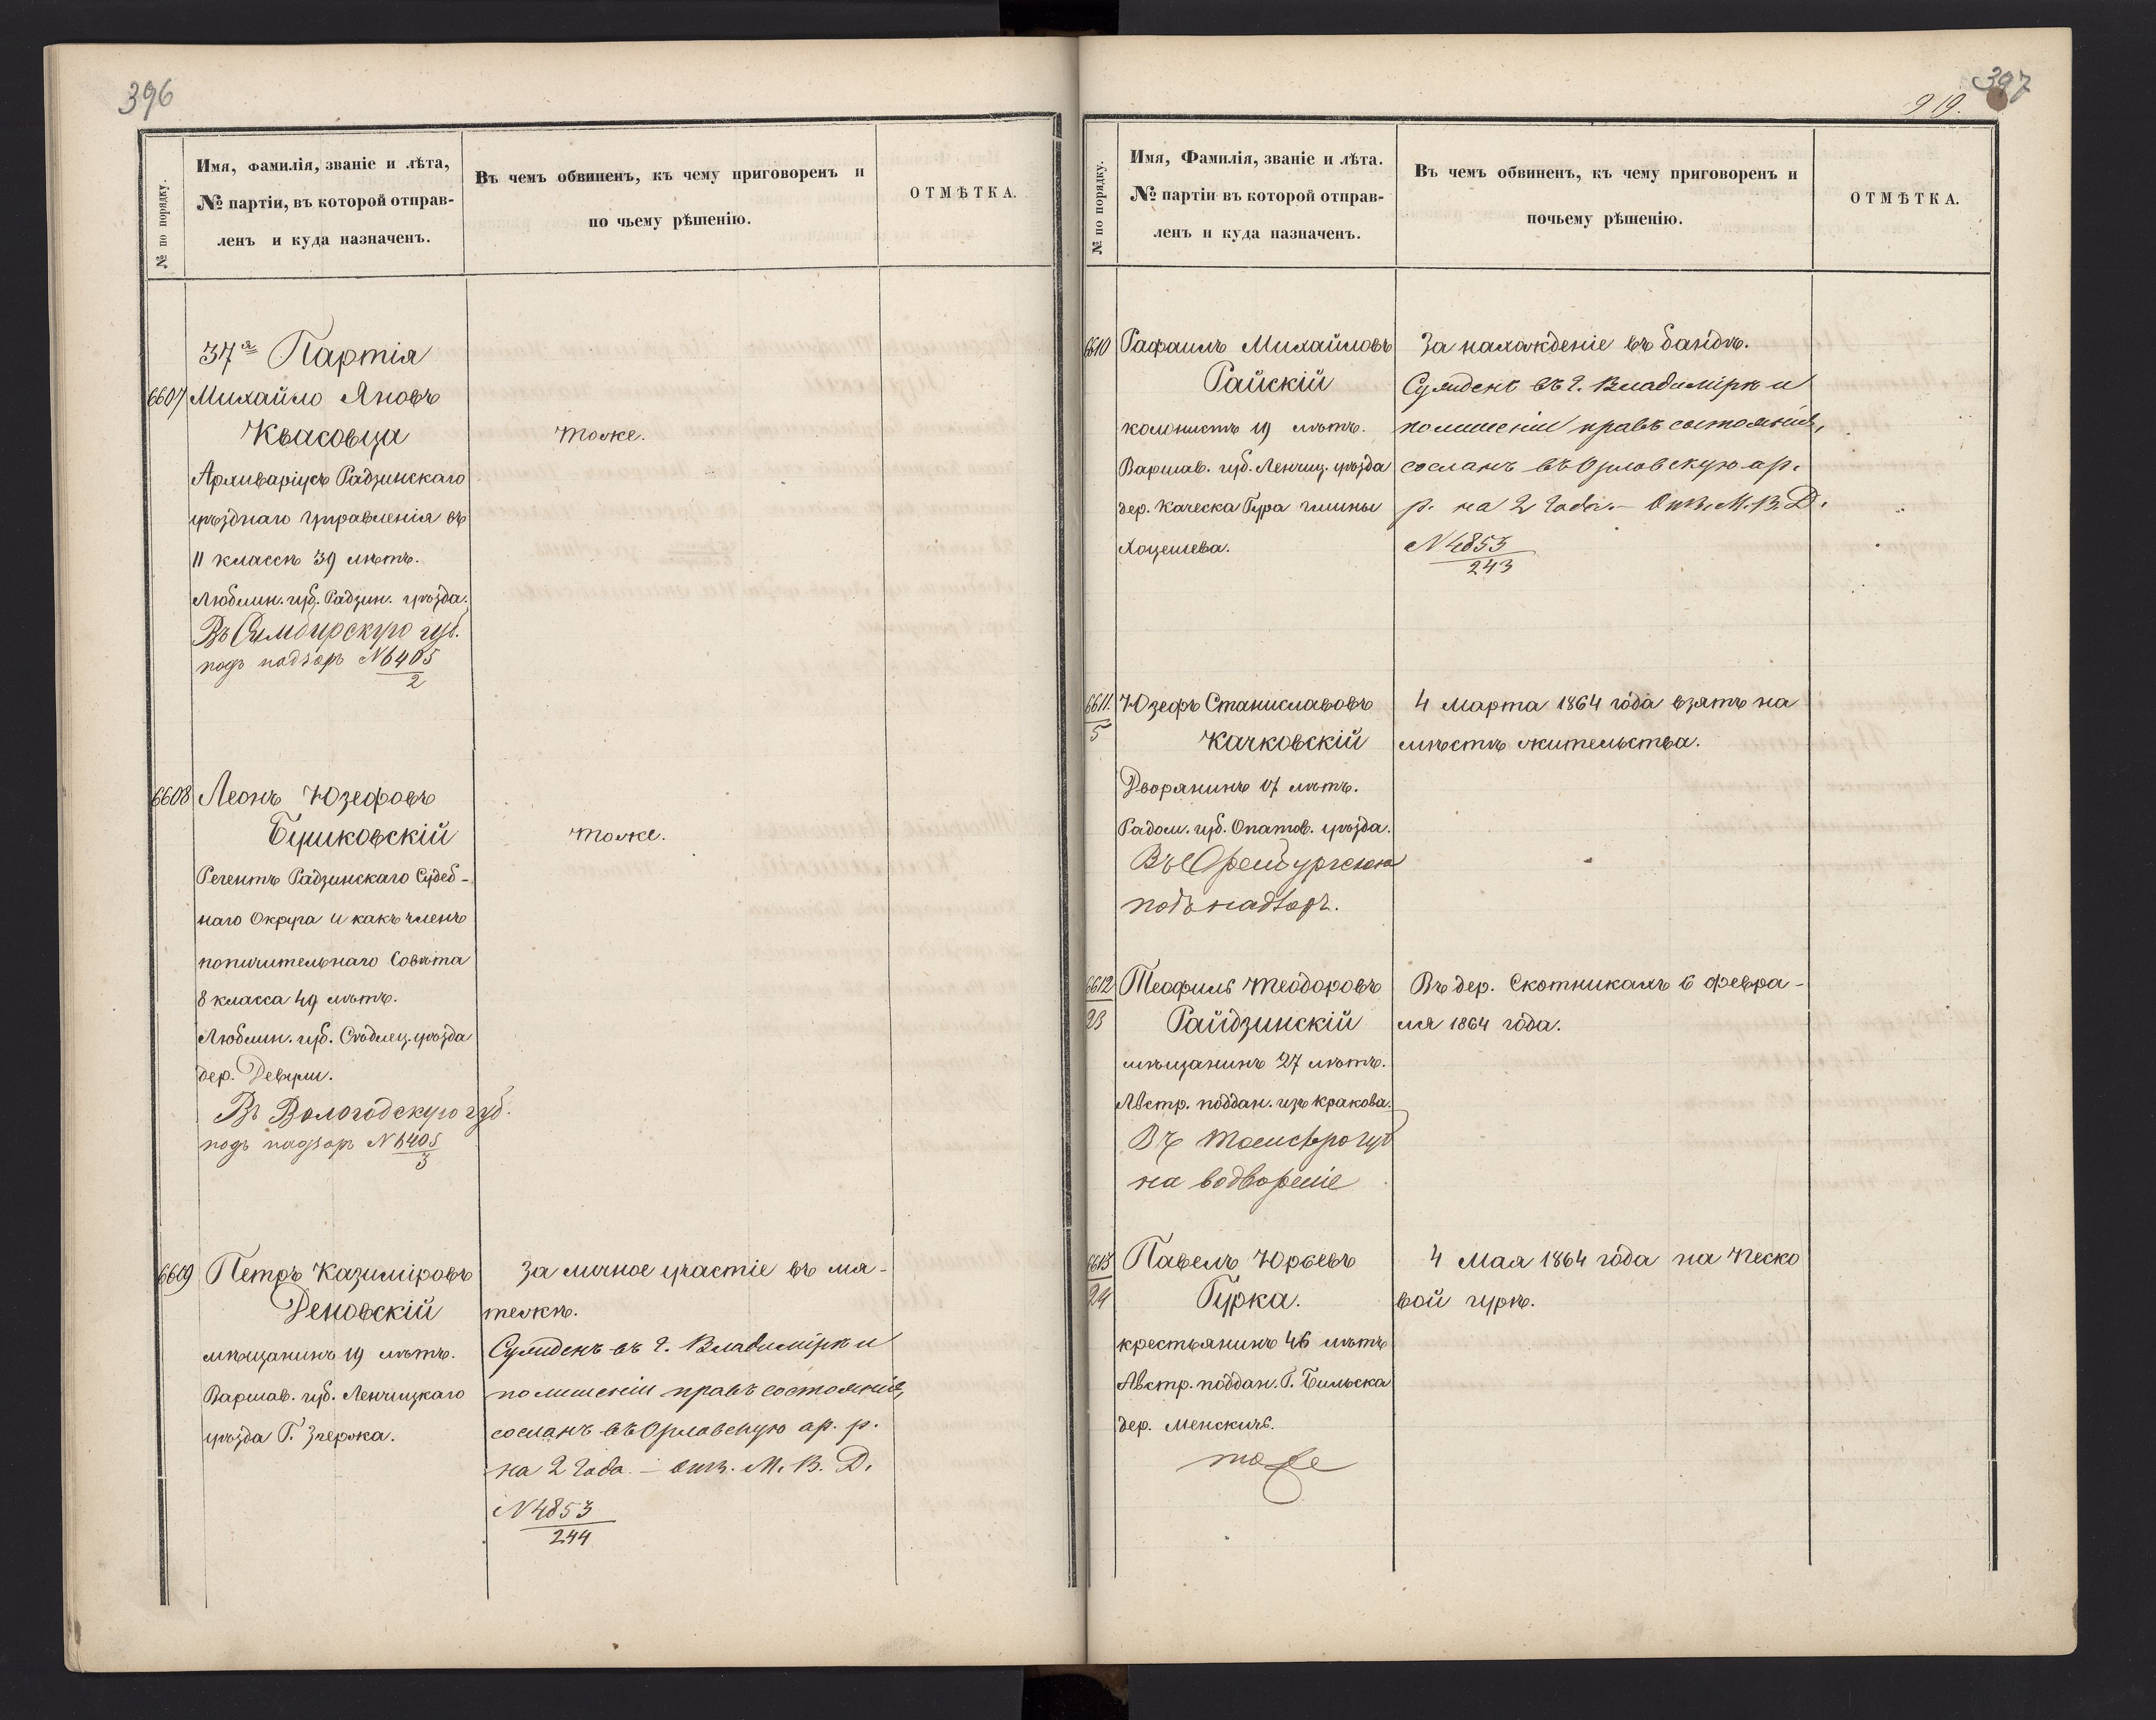 396
№ по порядку.
Имя, фамилія, званіе и лѣта,
№ партіи, въ которой отправ-
ленъ и куда назначенъ.
Въ чемъ обвиненъ, къ чему приговоренъ и
по чьему рѣшенію.
ОТМѢТКА.
37я Партія
6607 Михайло Яновъ
Квасовца
Архиваріусъ Радзинскаго
уѣзднаго Управленія въ
11 классѣ 39 лѣтъ.
Люблин. губ. Радзин. уѣзда.
Въ Симбирскую губ.
подъ надзоръ N 6405
2
тоже.
6608 Леонъ Юзефовъ
Бушковскій
Регентъ Радзинскаго Судеб-
наго Округа и какъ членъ
попичительнаго Совѣта
8 класса 49 лѣтъ.
Люблин. губ. Сѣдлец. уѣзда
дер.
Въ Вологодскую губ.
подъ надзоръ N 6405
3
тоже.
6609 Петръ Казиміровъ
Деновскій
мѣщанинъ 19 лѣтъ.
Варшав. губ. Ленчицкаго
уѣзда Г. Згержа.
За личное участіе въ мя-
тежѣ.
Сужденъ въ г. Владимірѣ и
по лишеніи правъ состоянія,
сосланъ въ Орловскую ар. р.
на 2 года. – Отн. М. В. Д.
N 4853
244
397
919.
№ по порядку.
Имя, Фамилія, званіе и лѣта.
№ партіи въ которой отправ-
ленъ и куда назначенъ.
Въ чемъ обвиненъ, къ чему приговоренъ и
почьему рѣшенію.
ОТМѢТКА.
6610 Рафаилъ Михайловъ
Райскій
колонистъ 19 лѣтъ.
Варшав. губ. Ленчиц. уѣзда
дер. Каческа Гура гмины
Хоцешева.
За нахожденіе въ бандѣ.
Сужденъ въ г. Владимірѣ и
по лишеніи правъ состоянія,
сосланъ въ Орловскую ар.
р. на 2 года. – Отн. М. В. Д.
N 4853
243
6611. Юзефъ Станиславовъ
5
Качковскій
Дворянинъ 17 лѣтъ.
Радом. губ. Опатов. уѣзда.
Въ Оренбургскую
подъ надзоръ.
4 Марта 1864 года взятъ на
мѣстѣ жительства.
6612 Теофиль Теодоровъ
23
Райдзинскій
мѣщанинъ 27 лѣтъ.
Австр. поддан. изъ Кракова.
Въ Томскую губ
на водвореніе
Въ дер. Скотникахъ 6 Февра-
ля 1864 года.
6613 Павелъ Юрьевъ
24
Гурка.
крестьянинъ 46 лѣтъ
Австр. поддан. Г. Бильска
дер.
тоже
4 Мая 1864 года на Песко
вой гурѣ.